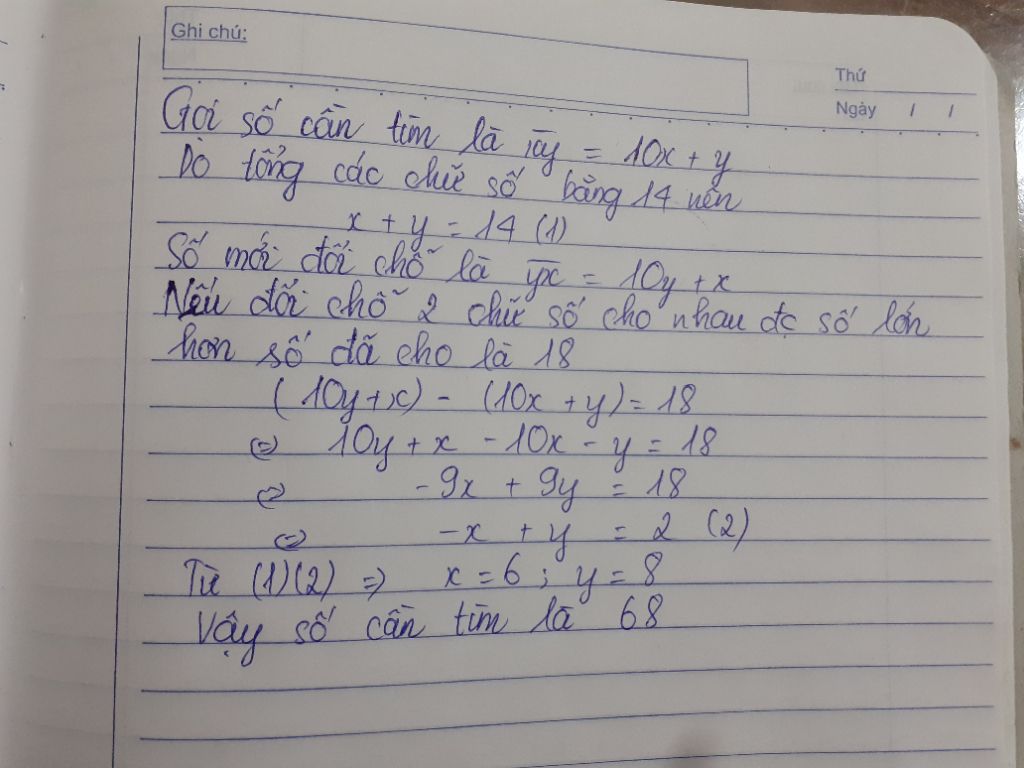 Ghi chú:
Thứ
Ngày / /
Gọi số cần tìm là xy = 10x + y
Do tổng các chữ số bằng 14 nên
x + y = 14 (1)
Số mới đổi chỗ là yx = 10y + x
Nếu đổi chỗ 2 chữ số cho nhau đc số lớn
hơn số đã cho là 18
(10y + x) - (10x + y) = 18
⇔ 10y + x - 10x - y = 18
⇔ -9x + 9y = 18
⇔ -x + y = 2 (2)
Từ (1)(2) => x = 6 ; y = 8
Vậy số cần tìm là 68